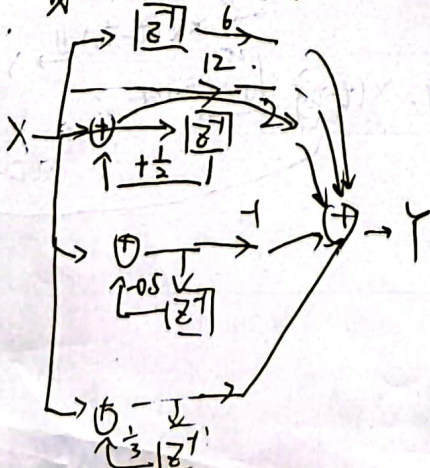 z⁻¹ 6
12
X + z⁻¹ 2
+1/2
+ -1 + → Y
-0.5 z⁻¹
+
1/3 z⁻¹